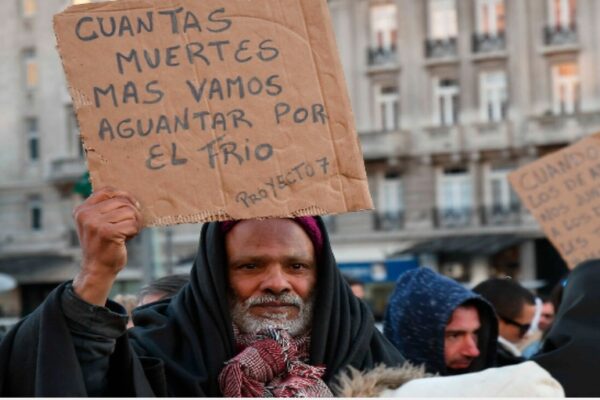 CUANTAS
MUERTES
MAS VAMOS
AGUANTAR POR
EL FRIO
PROYECTO 7
CUANDO
LOS DE A
NOS
LES